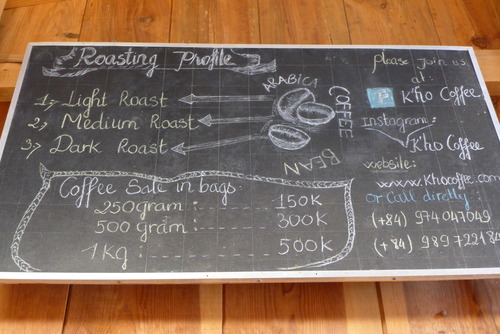 Roasting Profile
1, Light Roast
2, Medium Roast
3, Dark Roast
ARABICA
COFFEE
BEAN
Coffee Sale in bags.
250gram : 150K
500 gram : 300K
1kg : 500K
please Join us
at:
K'ho Coffee
Instagram:
K'ho Coffee
website:
www.Khocoffee.com
Or Call directly:
(+84) 974047049
(+84) 989722184